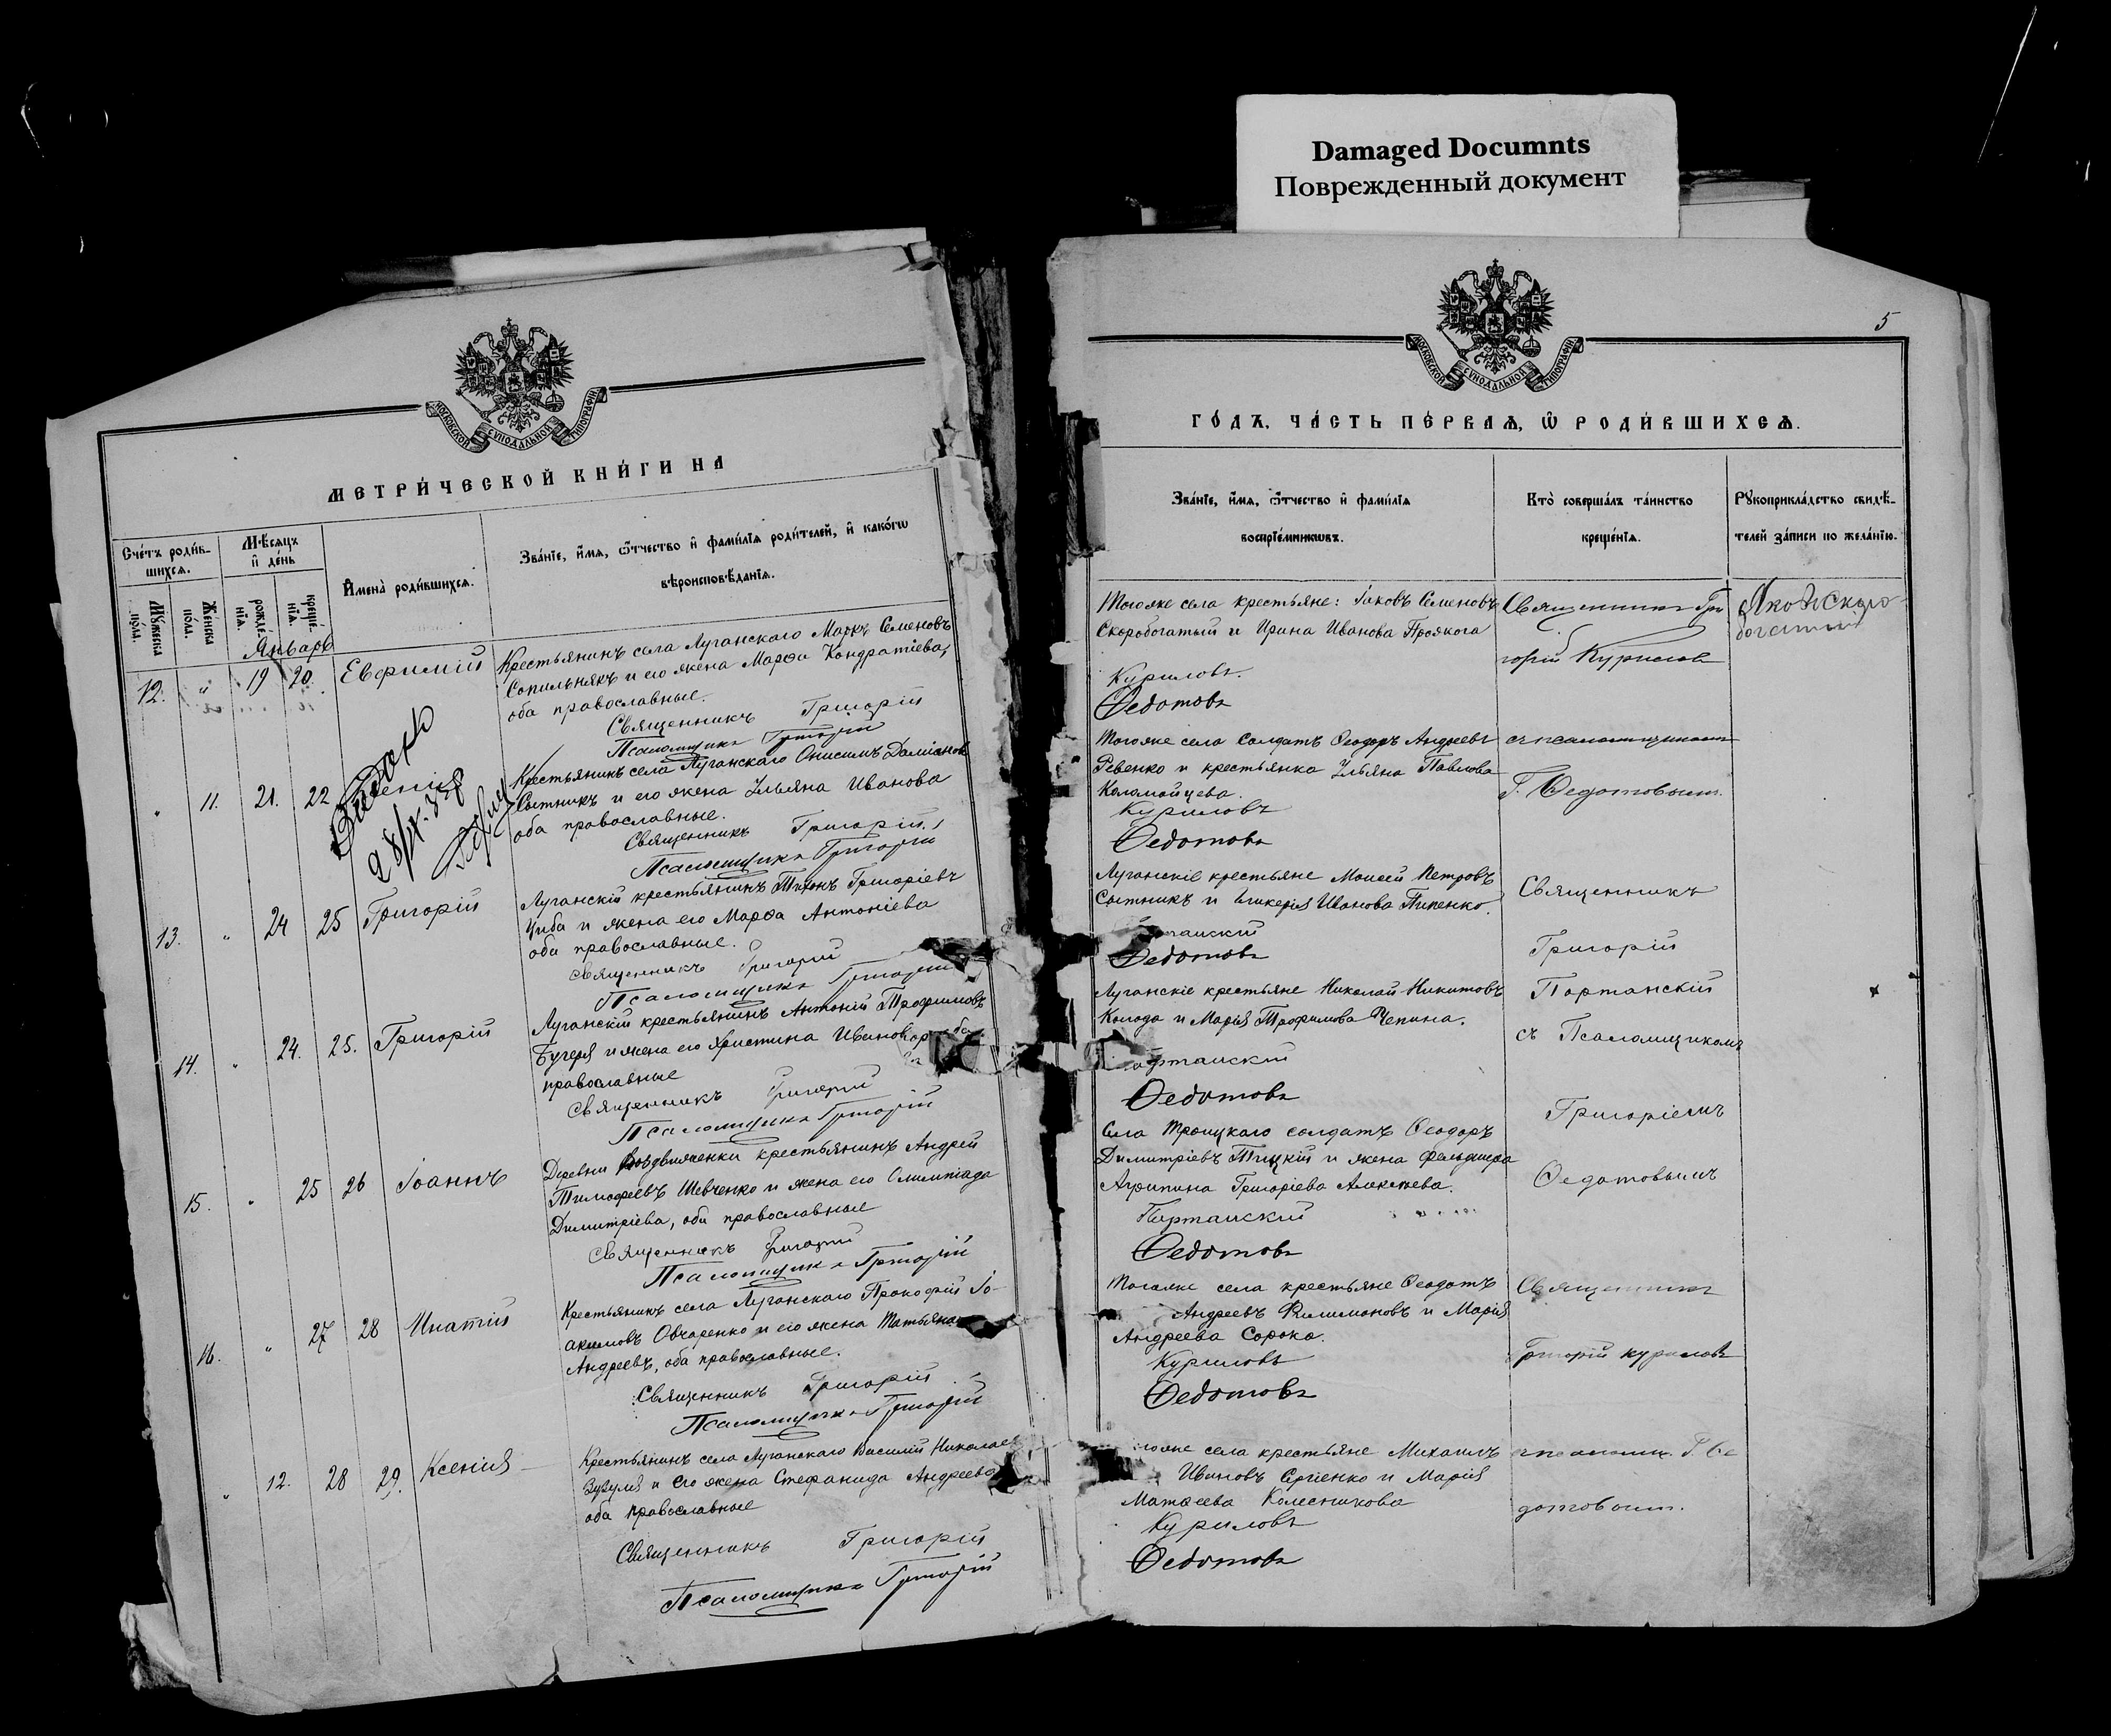 Damaged Documnts
Поврежденный документ
МОСКОВСКОЙ СѴНОДАЛЬНОЙ ТИПОГРАФІИ
МЕТРИ́ЧЕСКОЙ КНИ́ГИ НА
Сче́тъ роди́в-
шихсѧ.
Мꙋ́жеска по́ла.
Же́нска по́ла.
Мѣ́сѧцъ и҆ де́нь
рожде́нїѧ.
креще́нїѧ.
И҆мена̀ роди́вшихсѧ.
Зва́нїе, и҆́мѧ, ѻ҆́тчество и҆ фами́лїѧ роди́телей, и҆ како́гѡ
вѣроисповѣ́данїѧ.
Январь
12. " 19 20. Евфимій
Крестьянинъ села Луганскаго Маркъ Семеновъ
Сопильнякъ и его жена Марфа Кондратіева,
оба православные.
Священникъ Григорій
Псаломщикъ Григорій
" 11. 21. 22
Крестьянинъ села Луганскаго Онисимъ Даміановъ
Сытникъ и его жена Ульяна Иванова
оба православные.
Священникъ Григорій
Псаломщикъ Григорій
13. " 24 25 Григорій
Луганскій крестьянинъ Тихонъ Григоріевъ
Циба и жена его Марфа Антоніева
оба православные.
Священникъ Григорій
Псаломщикъ Григорій
14. " 24. 25. Григорій
Луганскій крестьянинъ Антоній Трофимовъ
Бугеря и жена его Христина Иванова оба
православные
Священникъ Григорій
Псаломщикъ Григорій
15. " 25 26 Іоаннъ
Деревни Воздвиженки крестьянинъ Андрей
Тимофеевъ Шевченко и жена его Олимпіада
Димитріева, оба православные
Священникъ Григорій
Псаломщикъ Григорій
16. " 27 28 Игнатій
Крестьянинъ села Луганскаго Прокофій Іо-
акимовъ Овчаренко и его жена Татьяна
Андреевъ, оба православные.
Священникъ Григорій
Псаломщикъ Григорій
" 12. 28 29. Ксенія
Крестьянинъ села Луганскаго Василій Николаев
Зузуля и его жена Стефанида Андреева
оба православные
Священникъ Григорій
Псаломщикъ Григорій
5
МОСКОВСКОЙ СѴНОДАЛЬНОЙ ТИПОГРАФІИ
ГО́ДЪ, ЧА́СТЬ ПЕ́РВАѦ, Ѡ҆ РОДИ́ВШИХСѦ.
Зва́нїе, и҆́мѧ, ѻ҆́тчество и҆ фами́лїѧ
воспрїе́мникѡвъ.
Кто̀ соверша́лъ та́инство
креще́нїѧ.
Рꙋкоприкла́дство свидѣ́-
телей за́писи по жела́нїю.
Тогоже села крестьяне: Іаковъ Семеновъ
Скоробогатый и Ирина Иванова
Куриловъ.
Федотовъ
Священникъ Гри
горій Куриловъ
Тогоже села Солдатъ Ѳеодоръ Андреевъ
Ревенко и крестьянка Ульяна Павлова
Коломойцева.
Куриловъ
Федотовъ
съ псаломщикомъ
Г. Ѳедотовымъ.
Луганскіе крестьяне Моисей Петровъ
Сытникъ и Гликерія Иванова Пипенко.
Федотовъ
Священникъ
Григорій
Луганскіе крестьяне Николай Никитовъ
Колода и Марія Трофимова Чепина.
Портанскій
Федотовъ
Портанскій
съ Псаломщикомъ
Григоріемъ
Села Троицкаго солдатъ Ѳеодоръ
Димитріевъ Тицкій и жена фельдшера
Агрипина Григоріева Алексѣева.
Портанскій
Федотовъ
Ѳедотовымъ
Тогоже села крестьяне Ѳеодотъ
Андреевъ Филимоновъ и Марія
Андреева Сорока.
Куриловъ
Федотовъ
Священникъ
Григорій Куриловъ
тогоже села крестьяне Михаилъ
Ивановъ Сергіенко и Марія
Матвеева Колесникова
Куриловъ
Федотовъ
съ псаломщ. Г. Ѳе
дотовымъ.